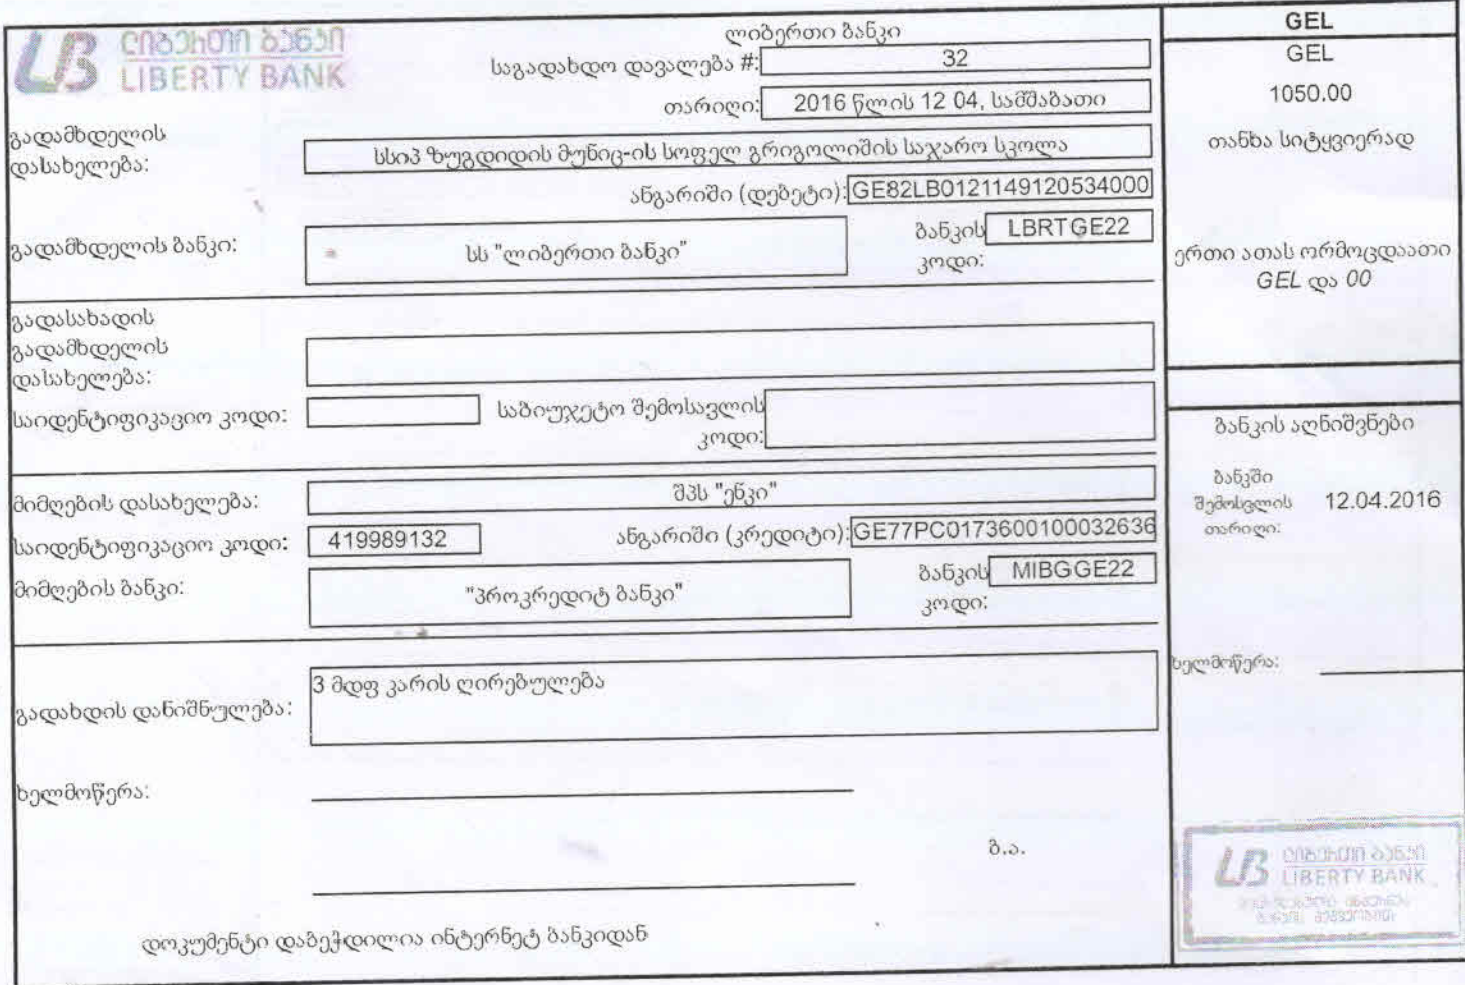 ლიბერთი ბანკი
LIBERTY BANK
ლიბერთი ბანკი
საგადახდო დავალება #: 32
თარიღი: 2016 წლის 12 04, სამშაბათი
გადამხდელის
დასახელება:
სსიპ ზუგდიდის მუნიც-ის სოფელ გრიგოლიშის საჯარო სკოლა
ანგარიში (დებეტი): GE82LB0121149120534000
გადამხდელის ბანკი: სს "ლიბერთი ბანკი"
ბანკის LBRTGE22
კოდი:
გადასახადის
გადამხდელის
დასახელება:
საიდენტიფიკაციო კოდი:
საბიუჯეტო შემოსავლის
კოდი:
მიმღების დასახელება: შპს "ენკი"
საიდენტიფიკაციო კოდი: 419989132
ანგარიში (კრედიტი): GE77PC0173600100032636
მიმღების ბანკი: "პროკრედიტ ბანკი"
ბანკის MIBGGE22
კოდი:
გადახდის დანიშნულება: 3 მდფ კარის ღირებულება
ხელმოწერა:
ბ.ა.
დოკუმენტი დაბეჭდილია ინტერნეტ ბანკიდან
GEL
GEL
1050.00
თანხა სიტყვიერად
ერთი ათას ორმოცდაათი
GEL და 00
ბანკის აღნიშვნები
ბანკში
შემოსვლის 12.04.2016
თარიღი:
ხელმოწერა:
ლიბერთი ბანკი
LIBERTY BANK